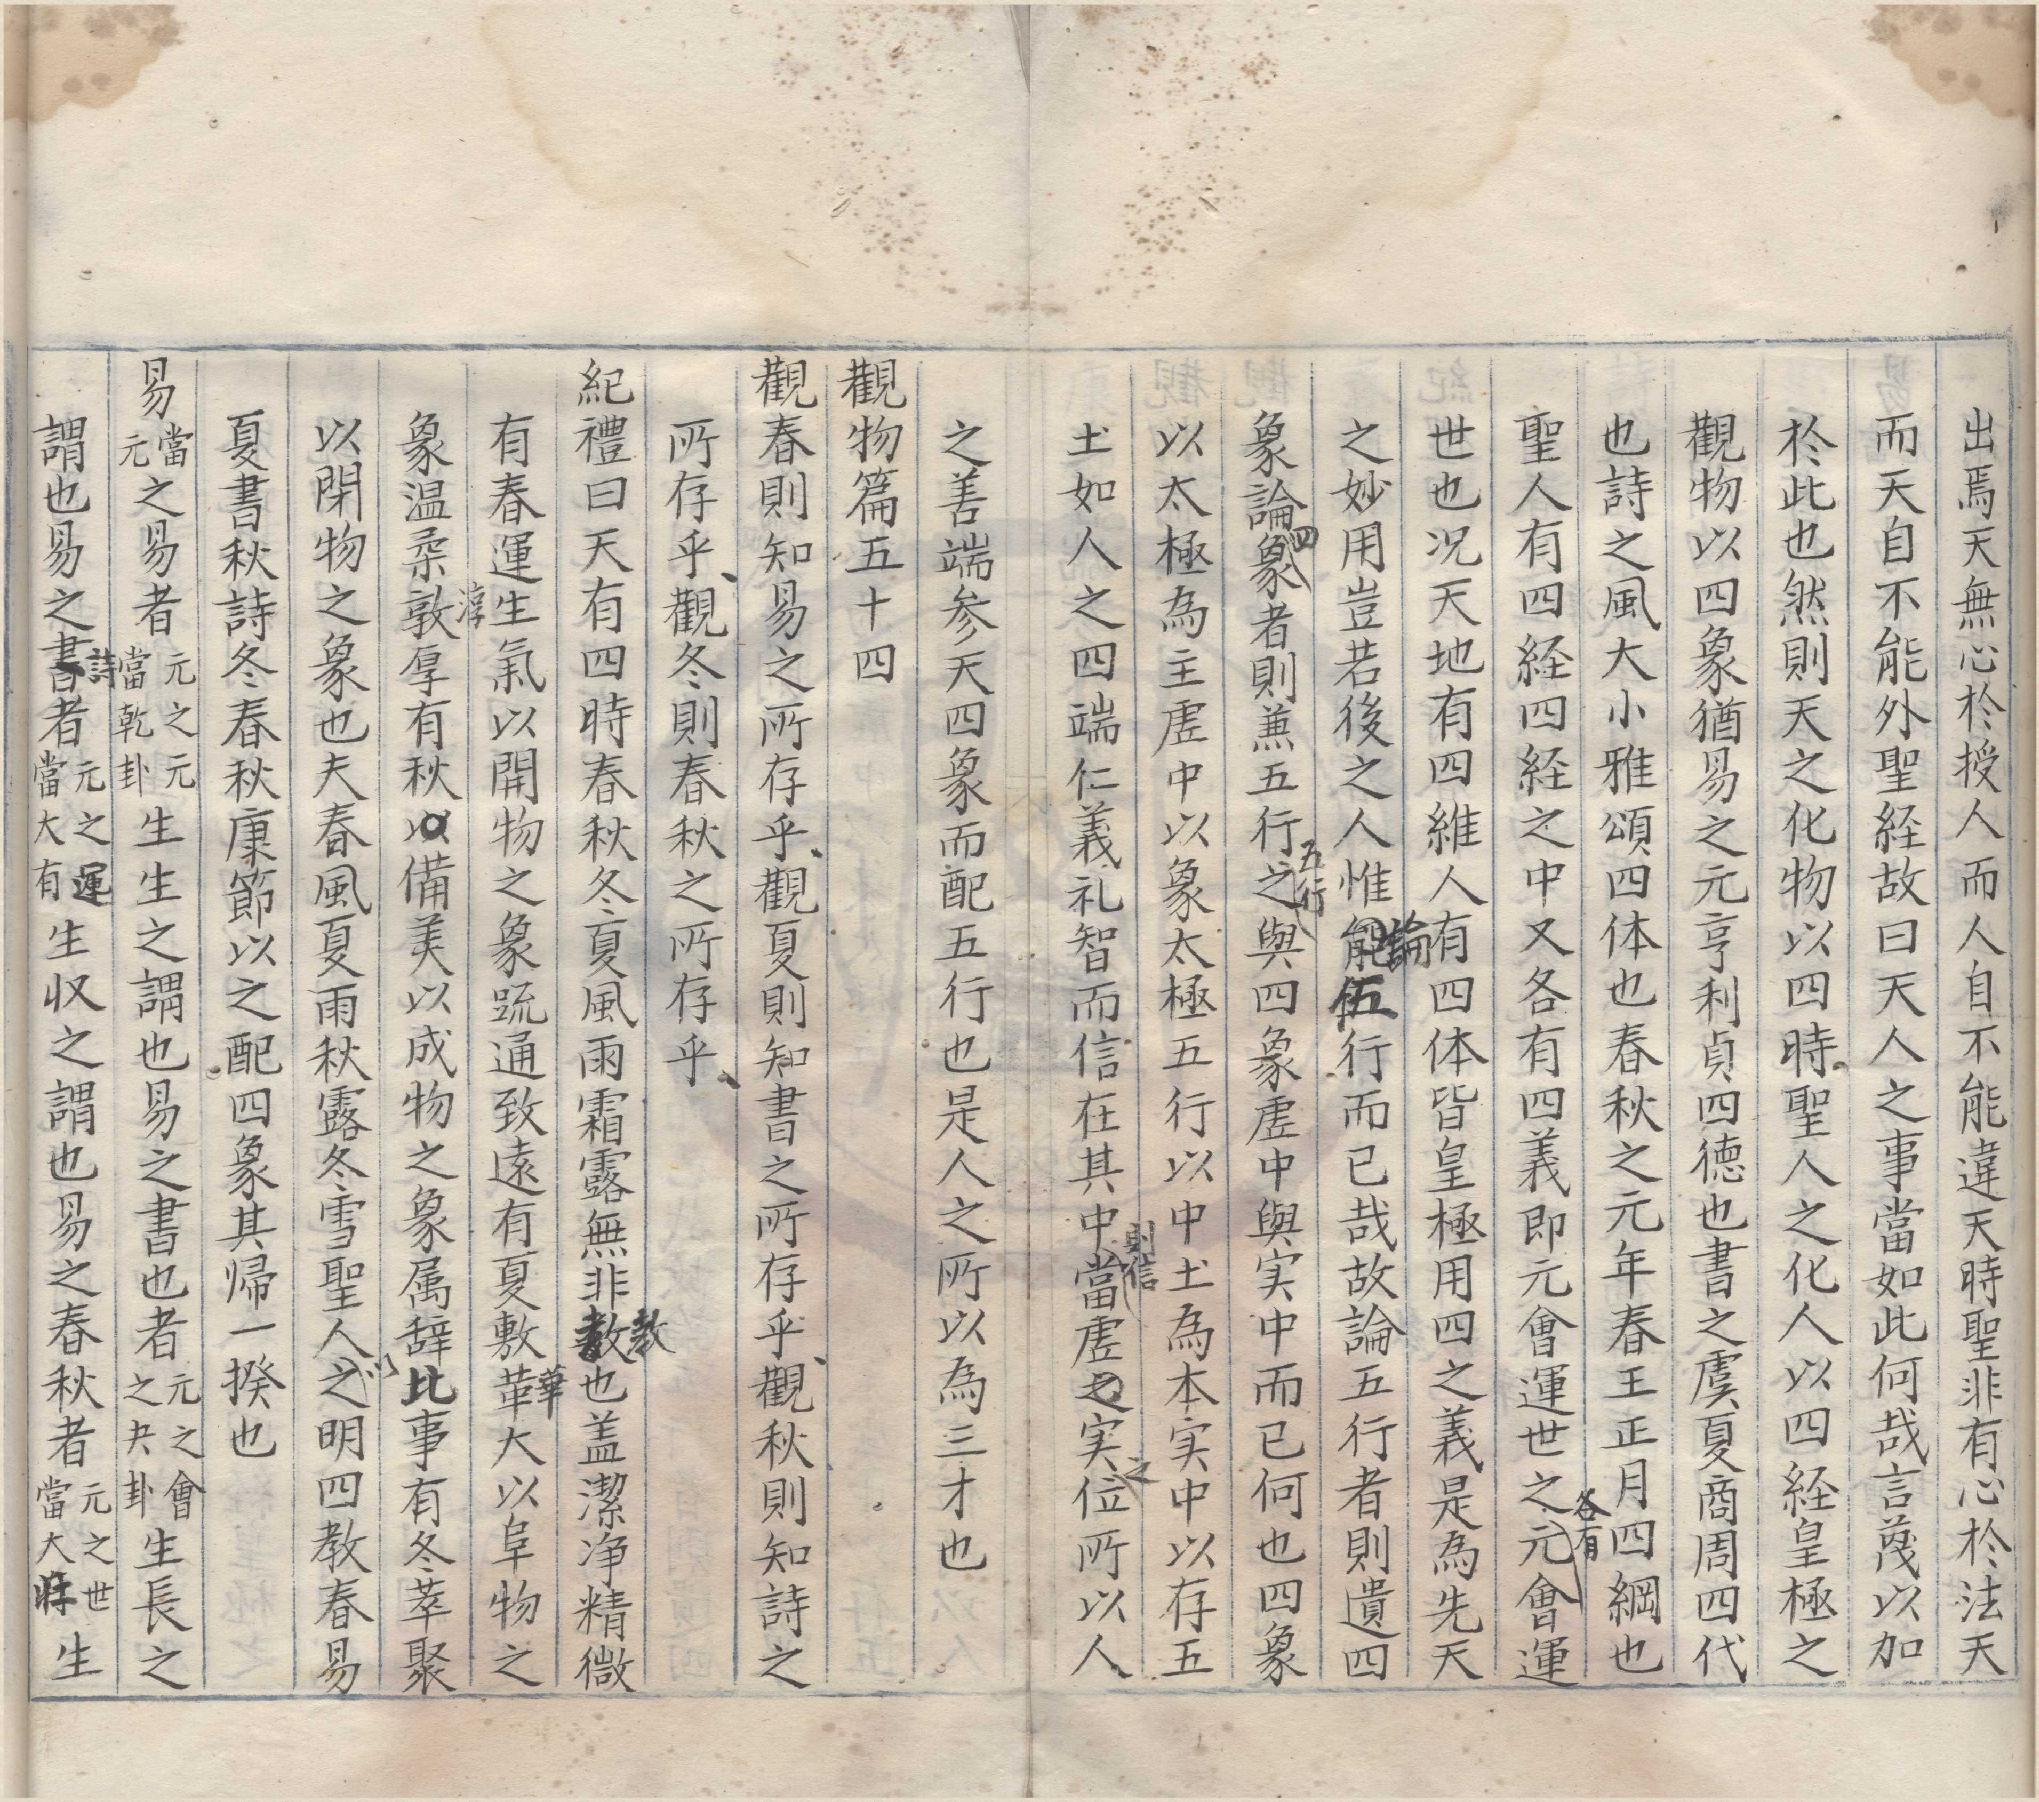 出焉天無心於授人而人自不能違天時聖非有心於法天
而天自不能外聖経故曰天人之事當如此何哉言蔑以加
於此也然則天之化物以四時聖人之化人以四経皇極之
觀物以四象猶易之元亨利貞四德也書之虞夏商周四代
也詩之風大小雅頌四体也春秋之元年春王正月四綱也
各有
聖人有四経四経之中又各有四義即元會運世之元會運
世也况天地有四維人有四体皆皇極用四之義是為先天
論
之妙用豈若後之人惟能伍行而已哉故論五行者則遺四
四
五行
象論象者則兼五行之與四象虚中與実中而已何也四象
以太極為主虚中以象太極五行以中土為本実中以存五
則信
之
土如人之四端仁義礼智而信在其中當虚之実位所以人
之善端参天四象而配五行也是人之所以為三才也
觀物篇五十四
觀春則知易之所存乎觀夏則知書之所存乎觀秋則知詩之
所存乎觀冬則春秋之所存乎
紀禮曰天有四時春秋冬夏風雨霜露無非教也盖潔净精微
教
有春運生氣以開物之象疏通致遠有夏敷華大以阜物之
華
淳
象温柔敦厚有秋以備美以成物之象属辞比事有冬萃聚
以閉物之象也夫春風夏雨秋露冬雪聖人之明四教春易
以
夏書秋詩冬春秋康節以之配四象其帰一揆也
易當元之易者元之元當乾卦生生之謂也易之書也者元之會之夬卦生長之
詩
謂也易之書者元之運當大有生収之謂也易之春秋者元之世當大将生